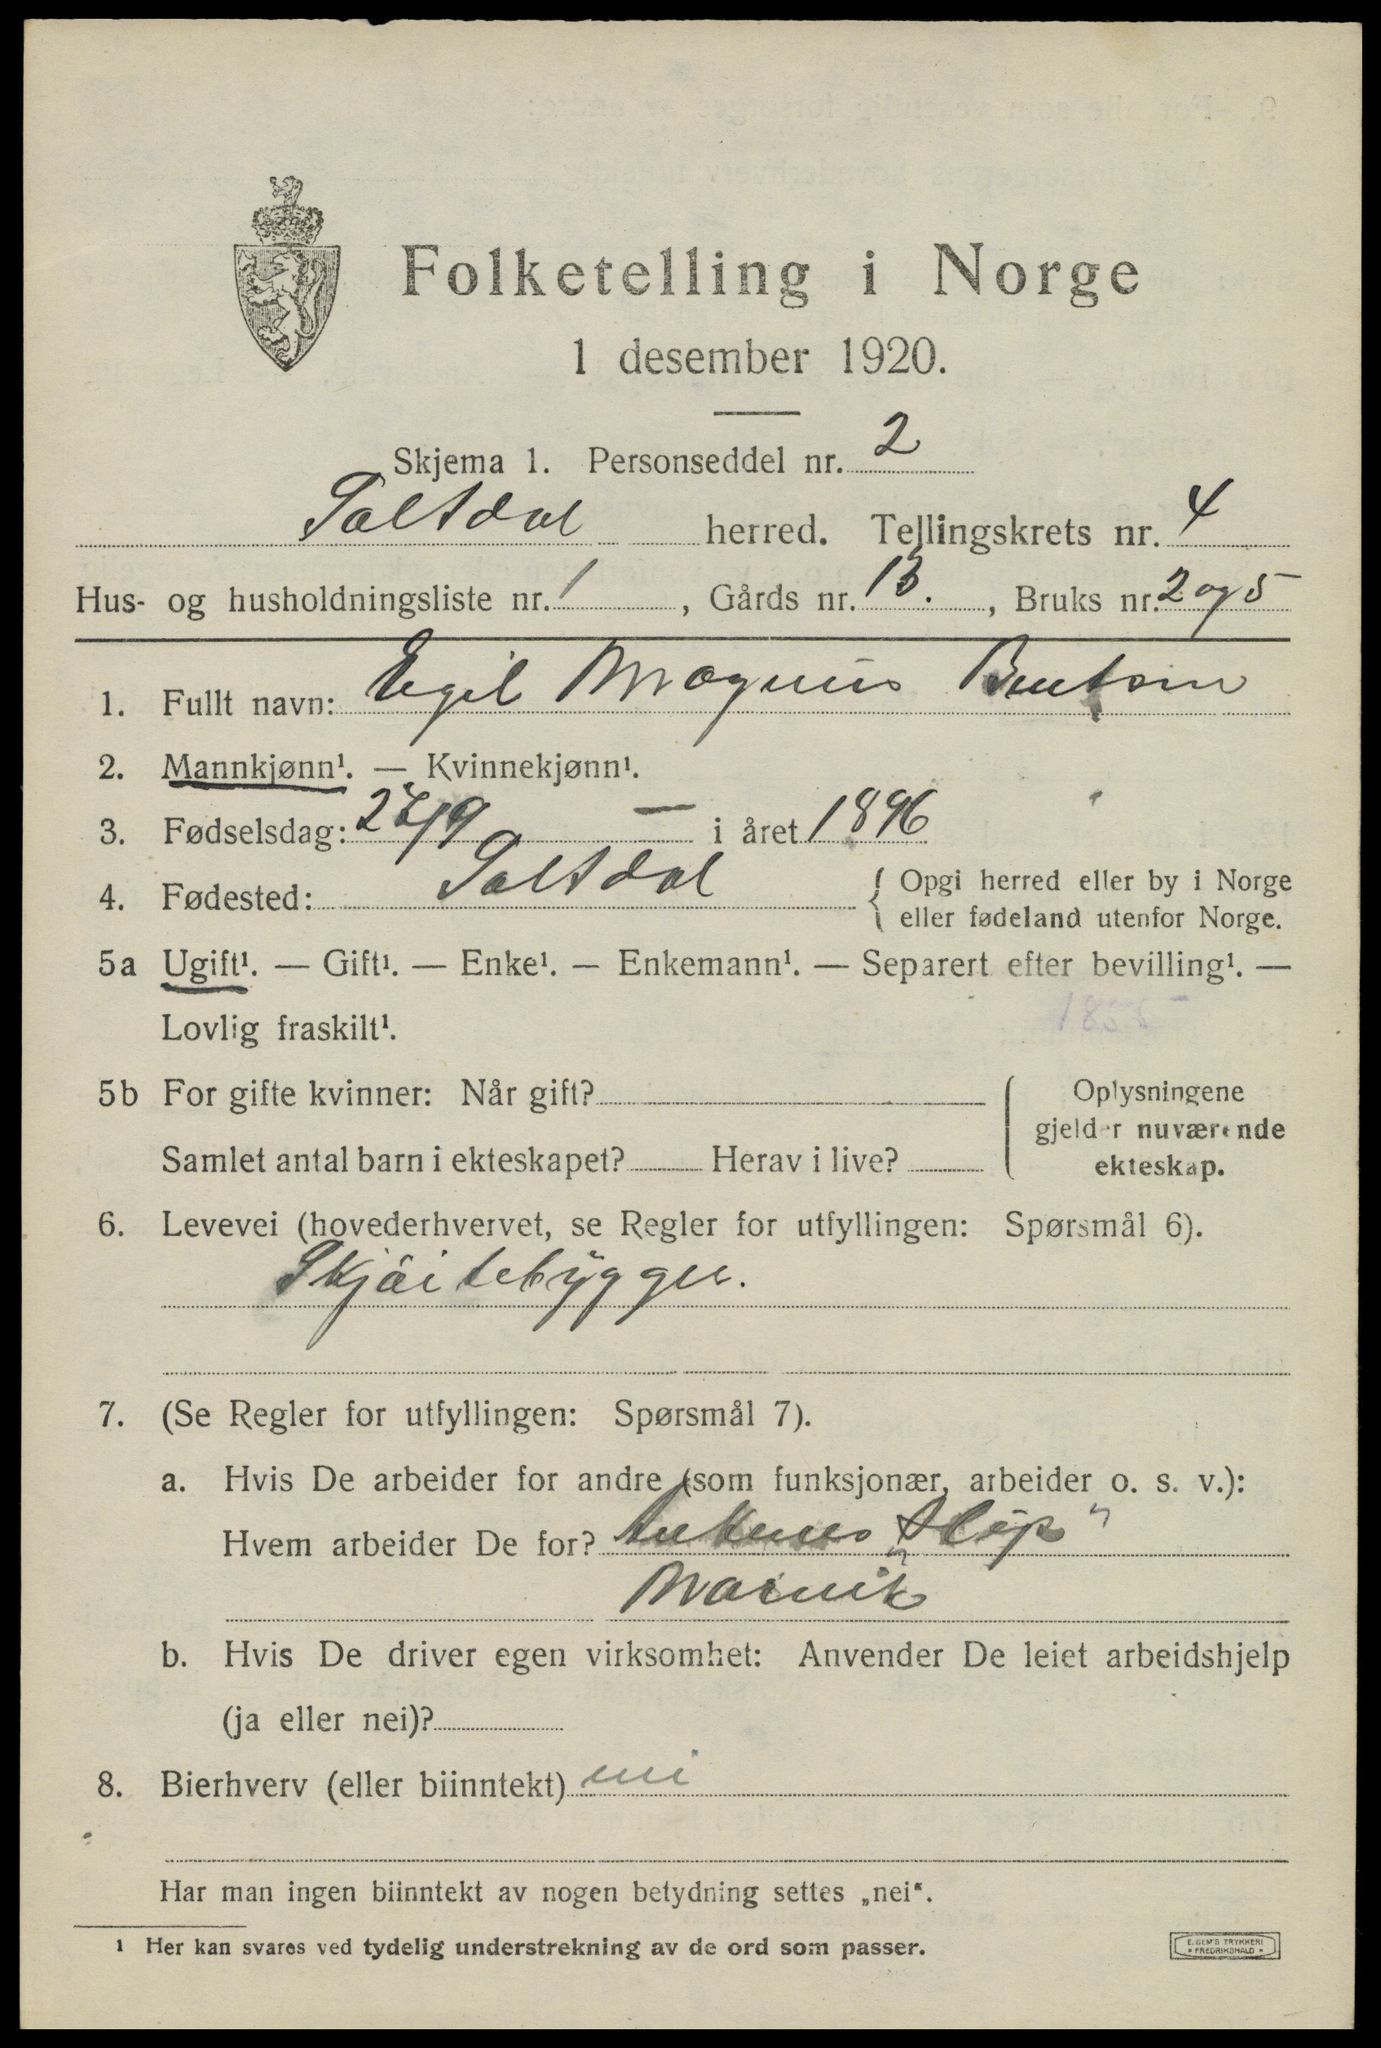 Folketelling i Norge
1 desember 1920.
Skjema 1. Personseddel nr. 2
Saltdal herred. Tellingskrets nr. 4
Hus- og husholdningsliste nr. 1, Gårds nr. 13., Bruks nr. 2 og 5
1. Fullt navn: Egil Magnus Bentsen
2. Mannkjønn¹. — Kvinnekjønn¹.
3. Fødselsdag: 27/9 — i året 1896
4. Fødested: Saltdal { Opgi herred eller by i Norge
eller fødeland utenfor Norge.
5a Ugift¹. — Gift¹. — Enke¹. — Enkemann¹. — Separert efter bevilling¹. —
Lovlig fraskilt¹.
5b For gifte kvinner: Når gift?
Samlet antal barn i ekteskapet? Herav i live?
Oplysningene
gjelder nuværende
ekteskap.
6. Levevei (hovederhvervet, se Regler for utfyllingen: Spørsmål 6).
Skjöitebygger.
7. (Se Regler for utfyllingen: Spørsmål 7).
a. Hvis De arbeider for andre (som funksjonær, arbeider o. s. v.):
Hvem arbeider De for? Slip"
b. Hvis De driver egen virksomhet: Anvender De leiet arbeidshjelp
(ja eller nei)?
8. Bierhverv (eller biinntekt) nei
Har man ingen biinntekt av nogen betydning settes „nei“.
¹ Her kan svares ved tydelig understrekning av de ord som passer.
E. SEM'S TRYKKERI
• FREDRIKSHALD •